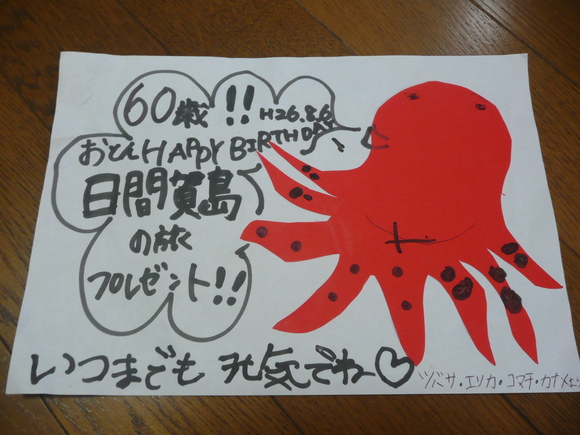 60歳!!
H26.8.6
おとんHAPPY BIRTHDAY
日間賀島
の旅
プレゼント!!
いつまでも 元気でね♡
ツバサ・エリカ・コマチ・カナメ